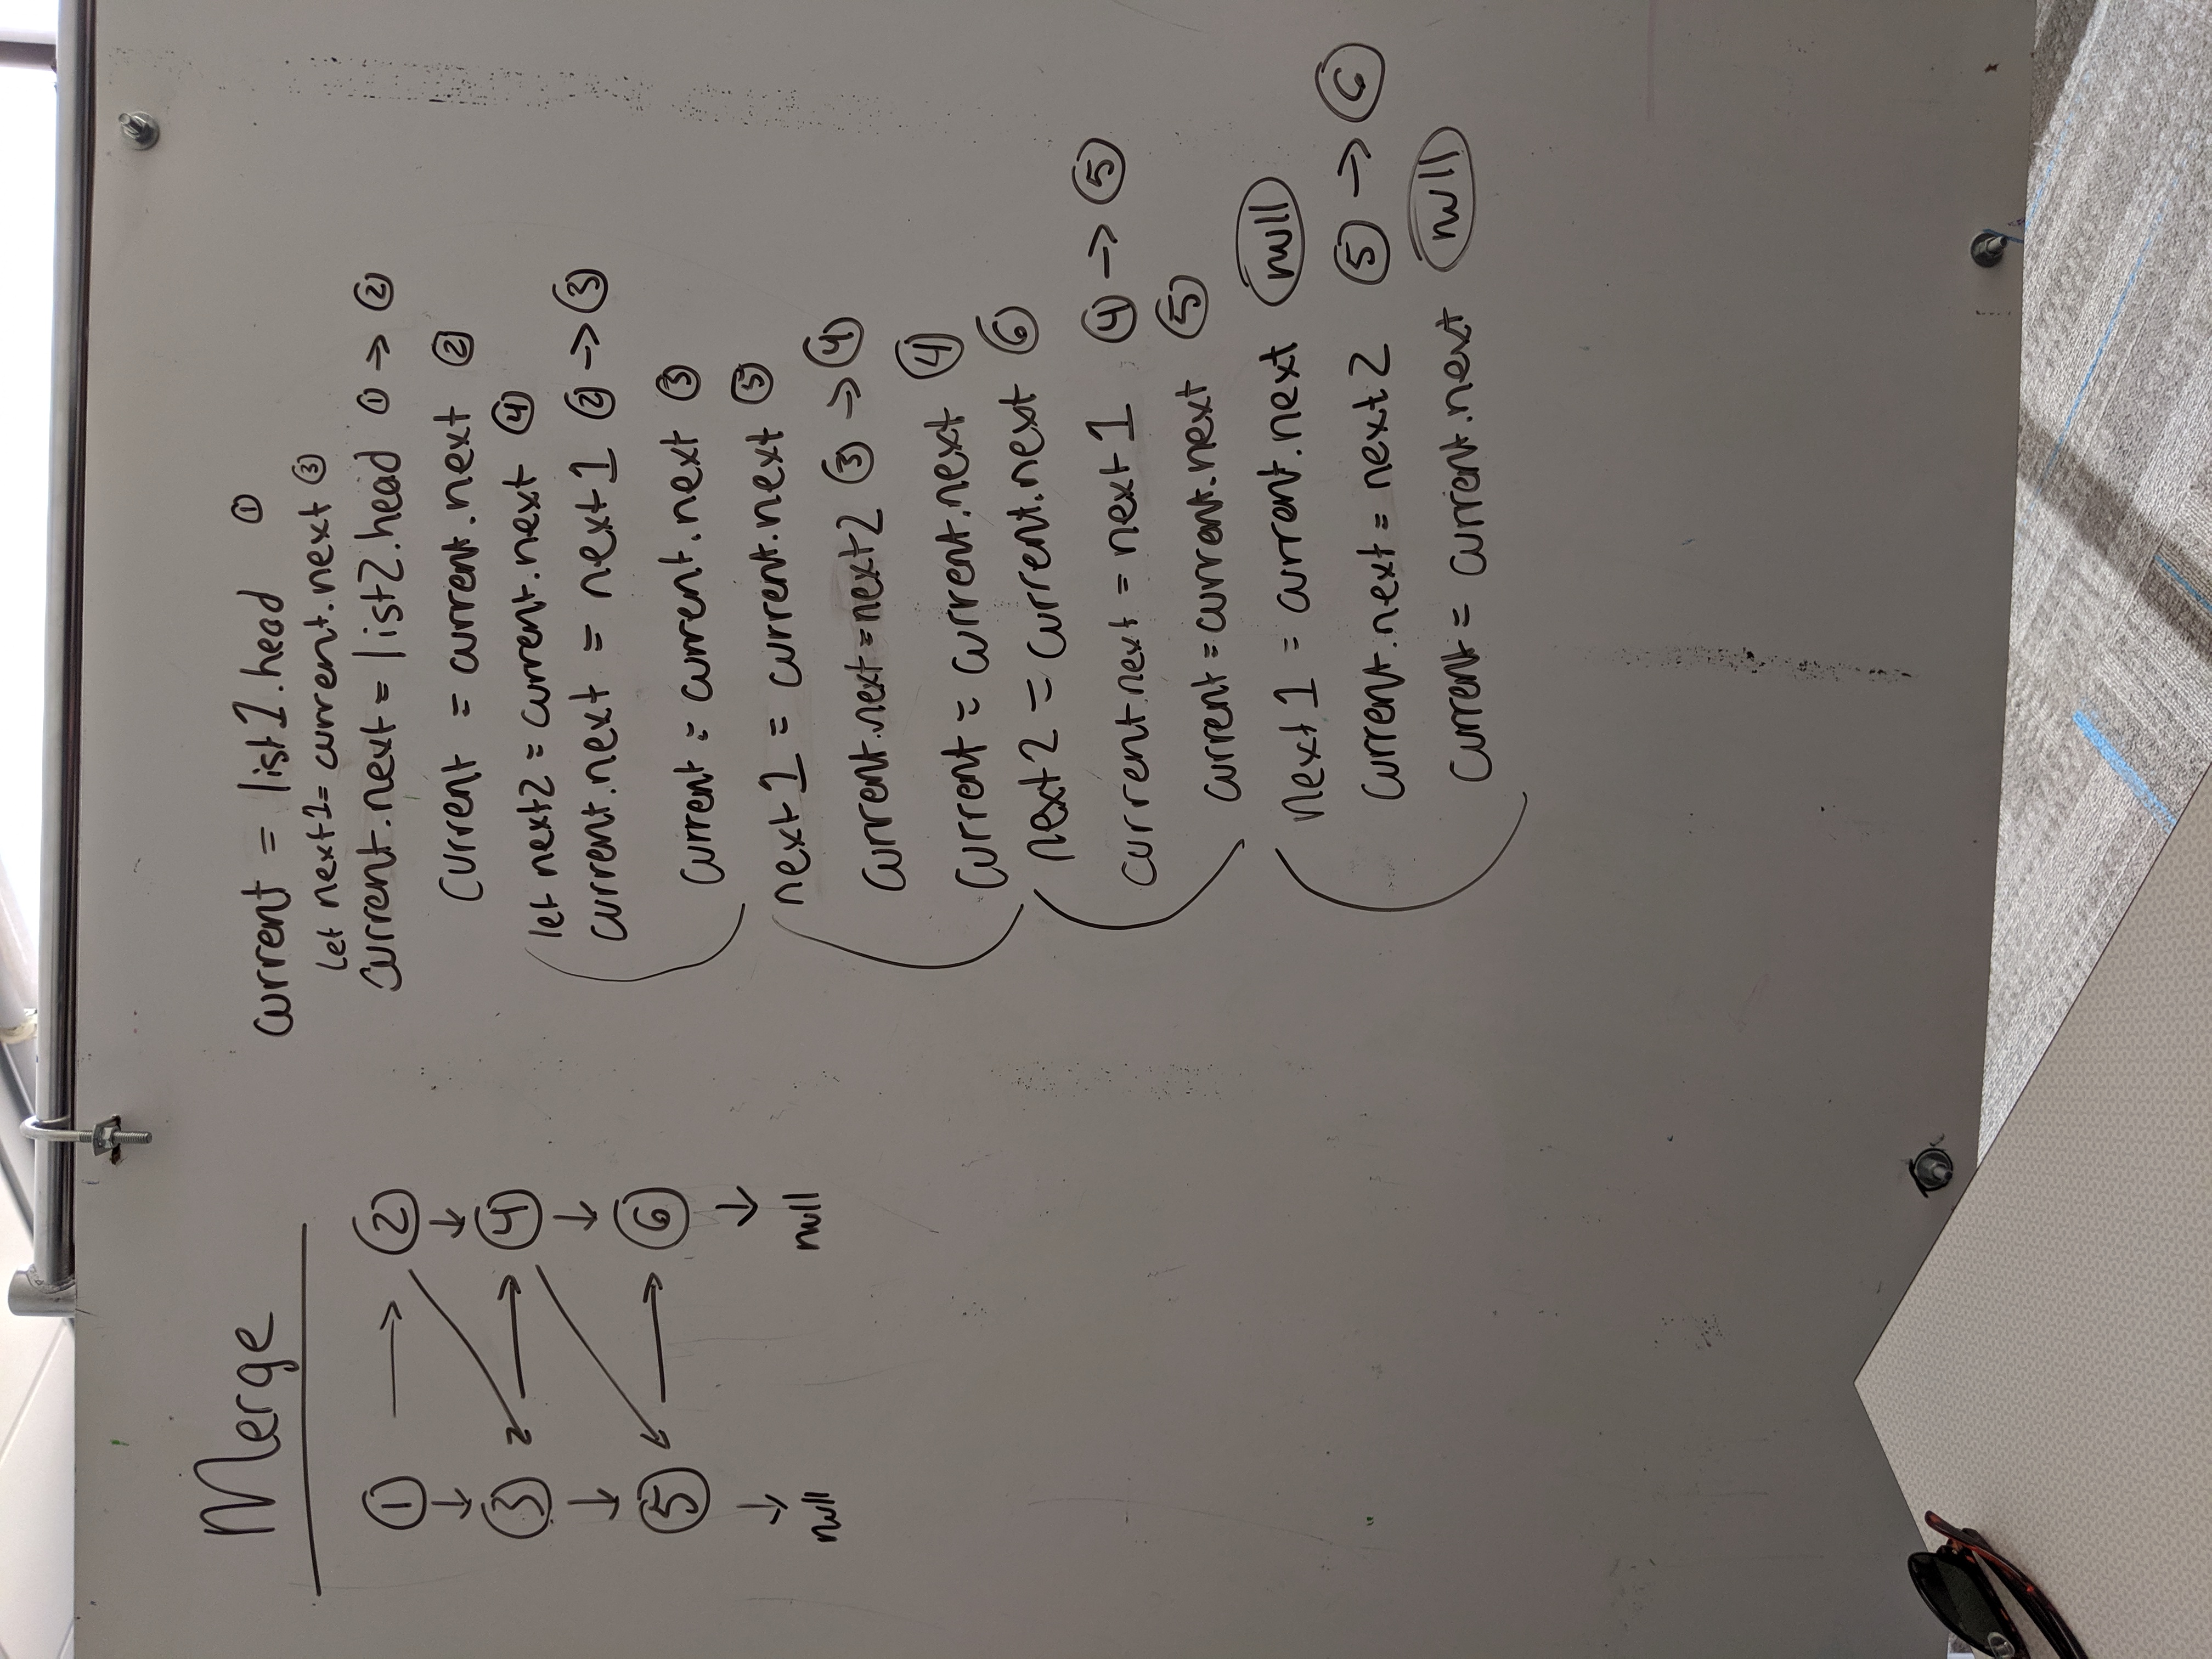 Merge
① → ②
↓ ↓
③ → ④
↓ ↓
⑤ → ⑥
↓ ↓
null null
current = list1.head ①
let next1= current.next ③
current.next = list2.head ① → ②
current = current.next ②
let next2 = current.next ④
current.next = next1 ② → ③
current = current.next ③
next1 = current.next ⑤
current.next = next2 ③ → ④
current = current.next ④
next2 = current.next ⑥
current.next = next1 ④ → ⑤
current = current.next ⑤
next1 = current.next null
current.next = next2 ⑤ → ⑥
current = current.next null